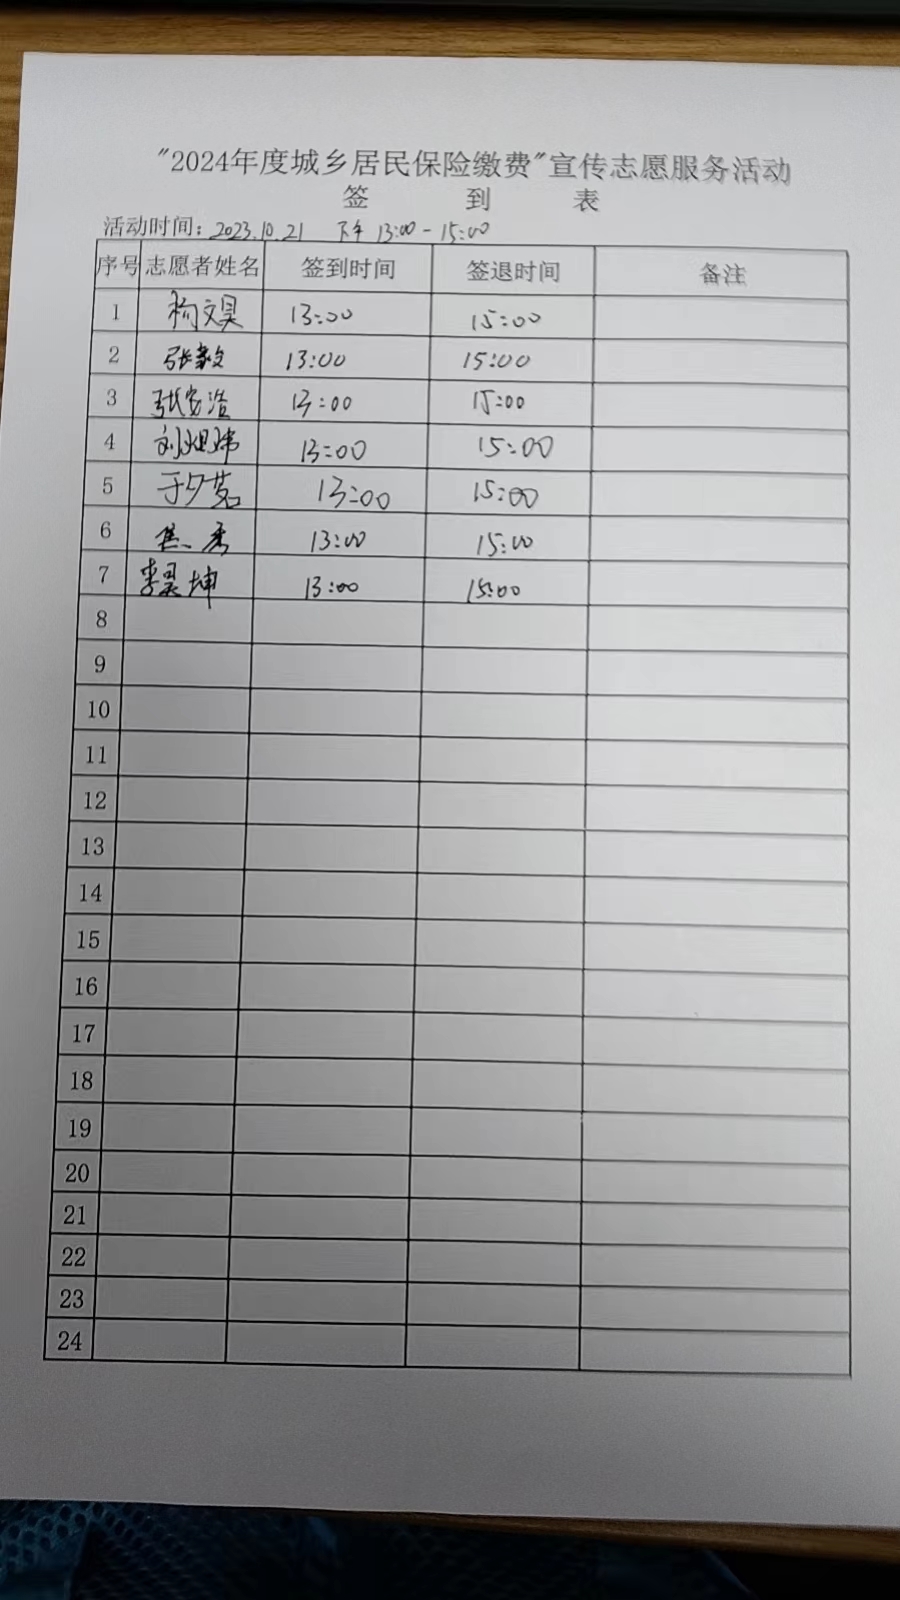 "2024年度城乡居民保险缴费"宣传志愿服务活动
签 到 表
活动时间：2023.10.21 下午 13:00-15:00
序号 志愿者姓名 签到时间 签退时间 备注
1 杨文昊 13:00 15:00
2 张毅 13:00 15:00
3 张家浩 13:00 15:00
4 刘 13:00 15:00
5 于夕茗 13:00 15:00
6 焦秀 13:00 15:00
7 李昊坤 13:00 15:00
8
9
10
11
12
13
14
15
16
17
18
19
20
21
22
23
24